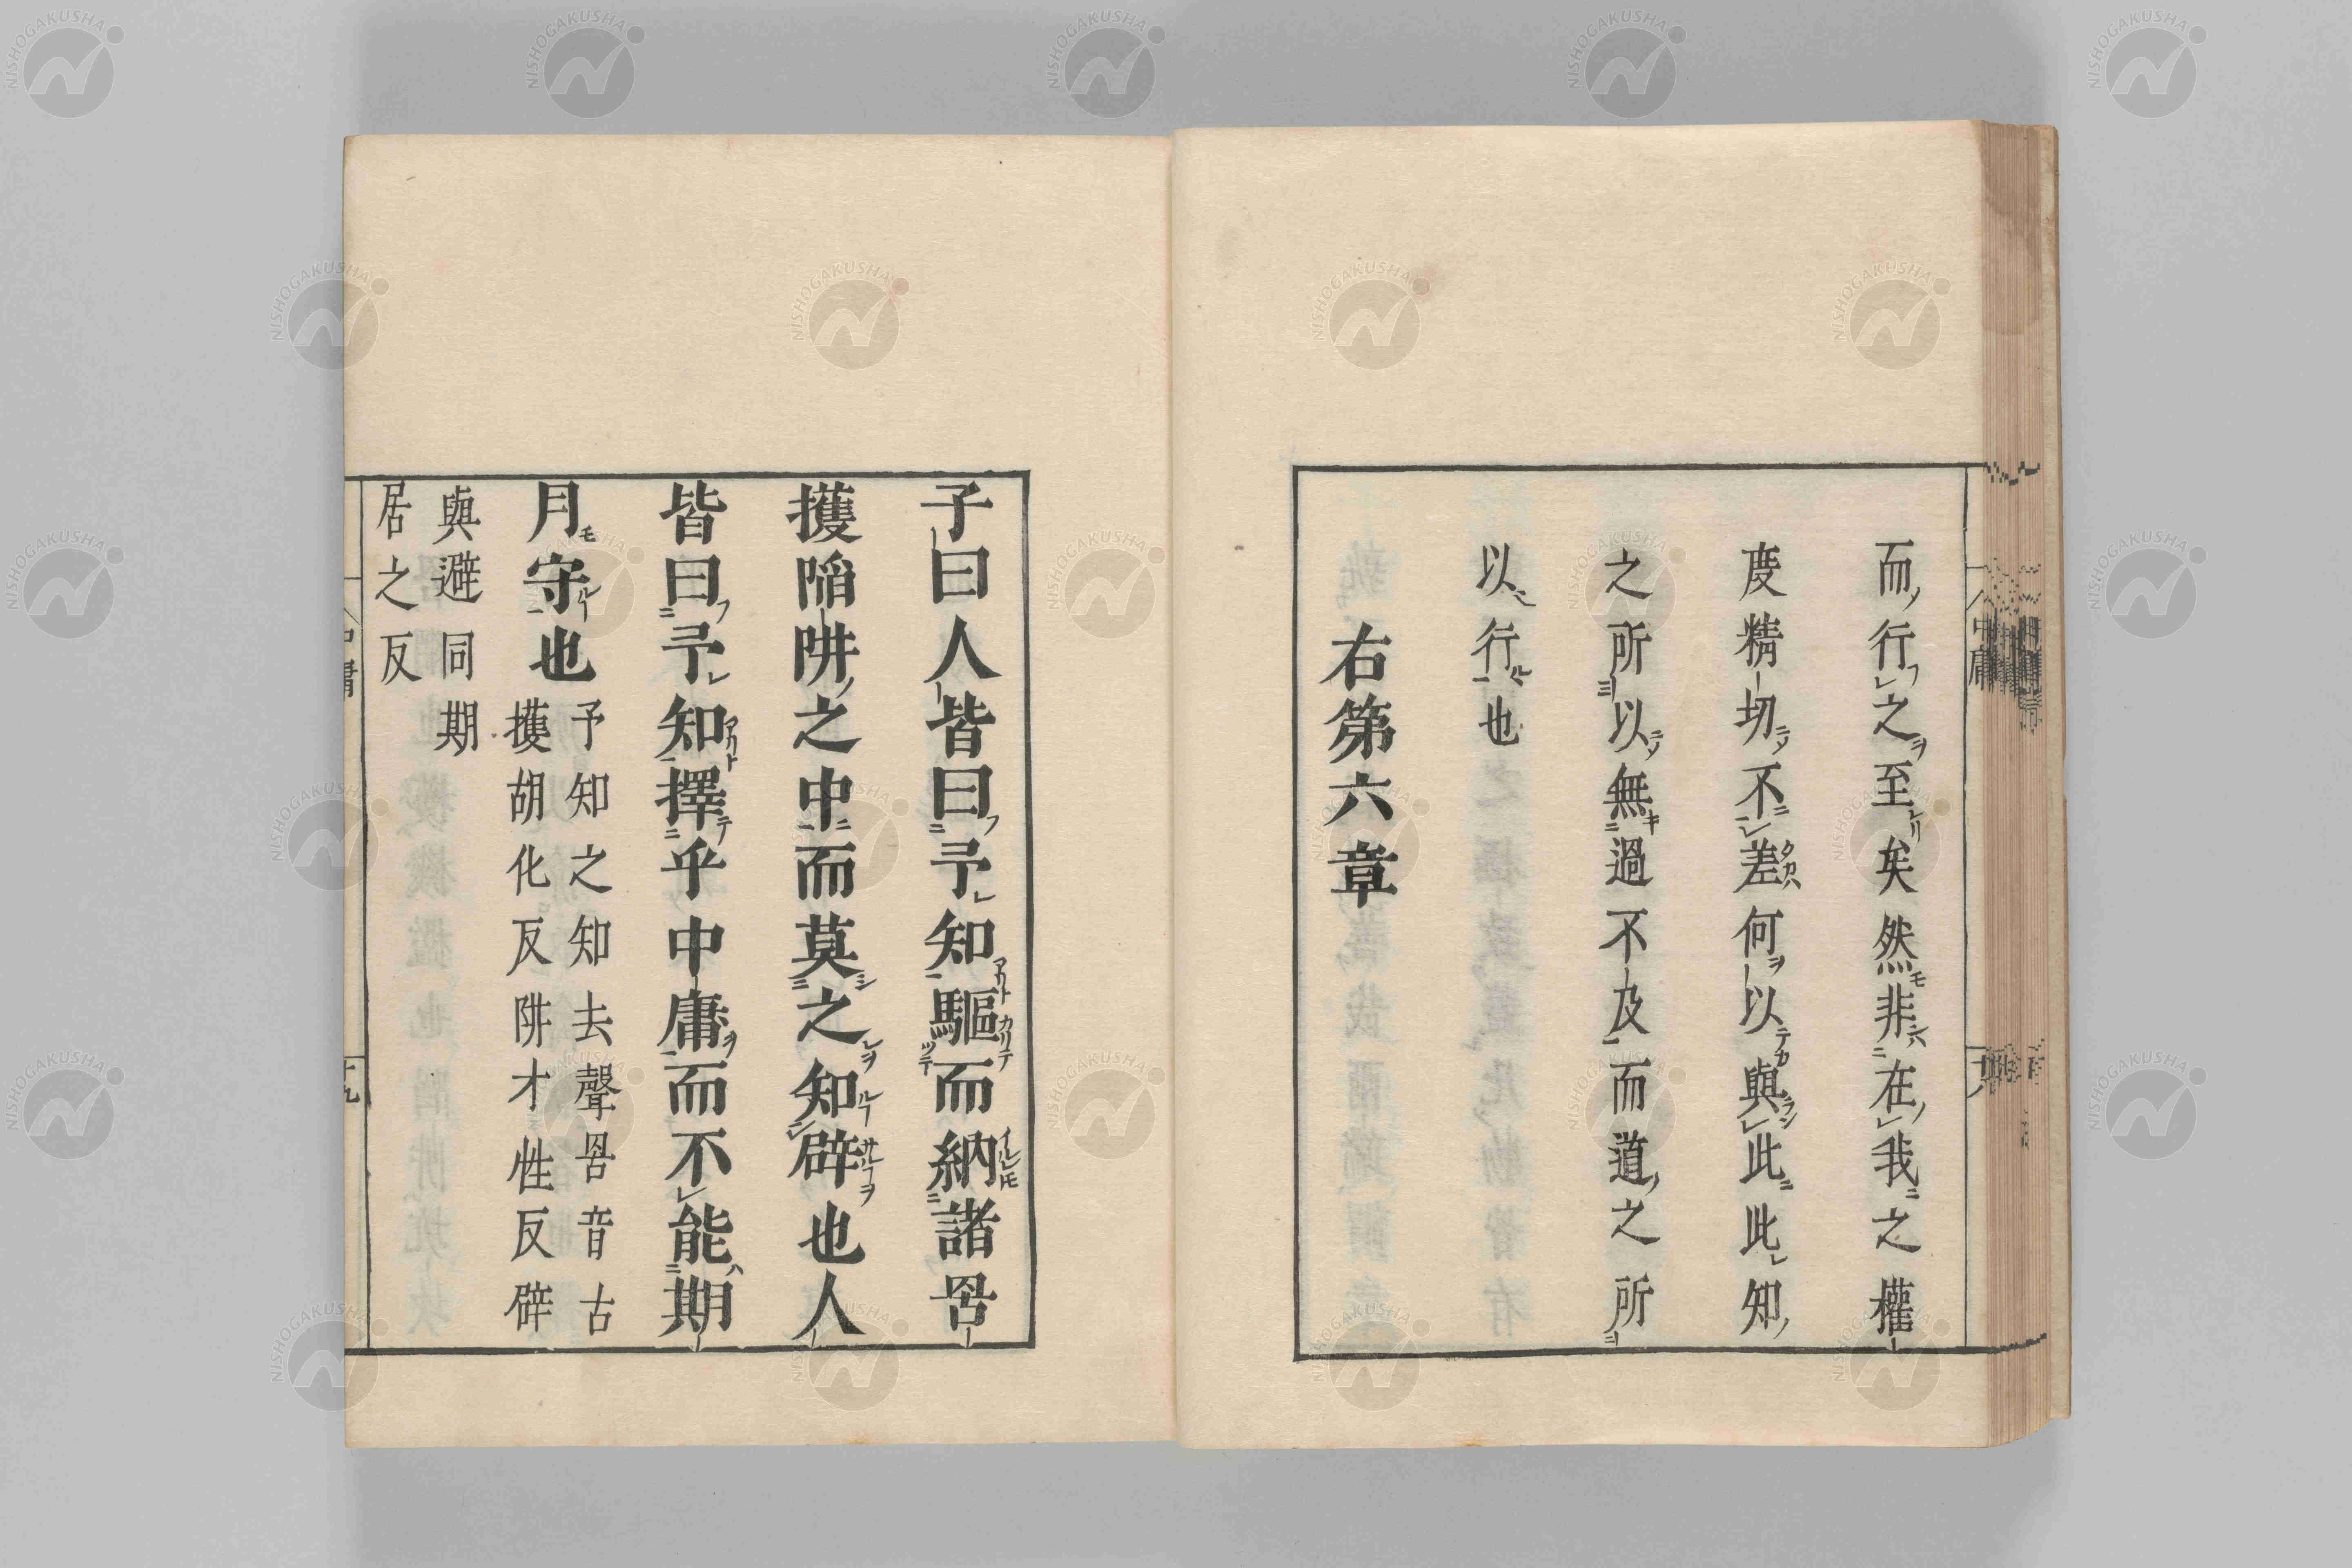 而行之至矣然非在我之權
度精切不差何以與此此知
之所以無過不及而道之所
以行也
右第六章
子曰人皆曰予知驅而納諸罟
擭陷阱之中而莫之知辟也人
皆曰予知擇乎中庸而不能期
月守也
予知之知去聲罟音古
擭胡化反阱才性反辟
與避同期
居之反
中庸
十九
NISHOGAKUSHA